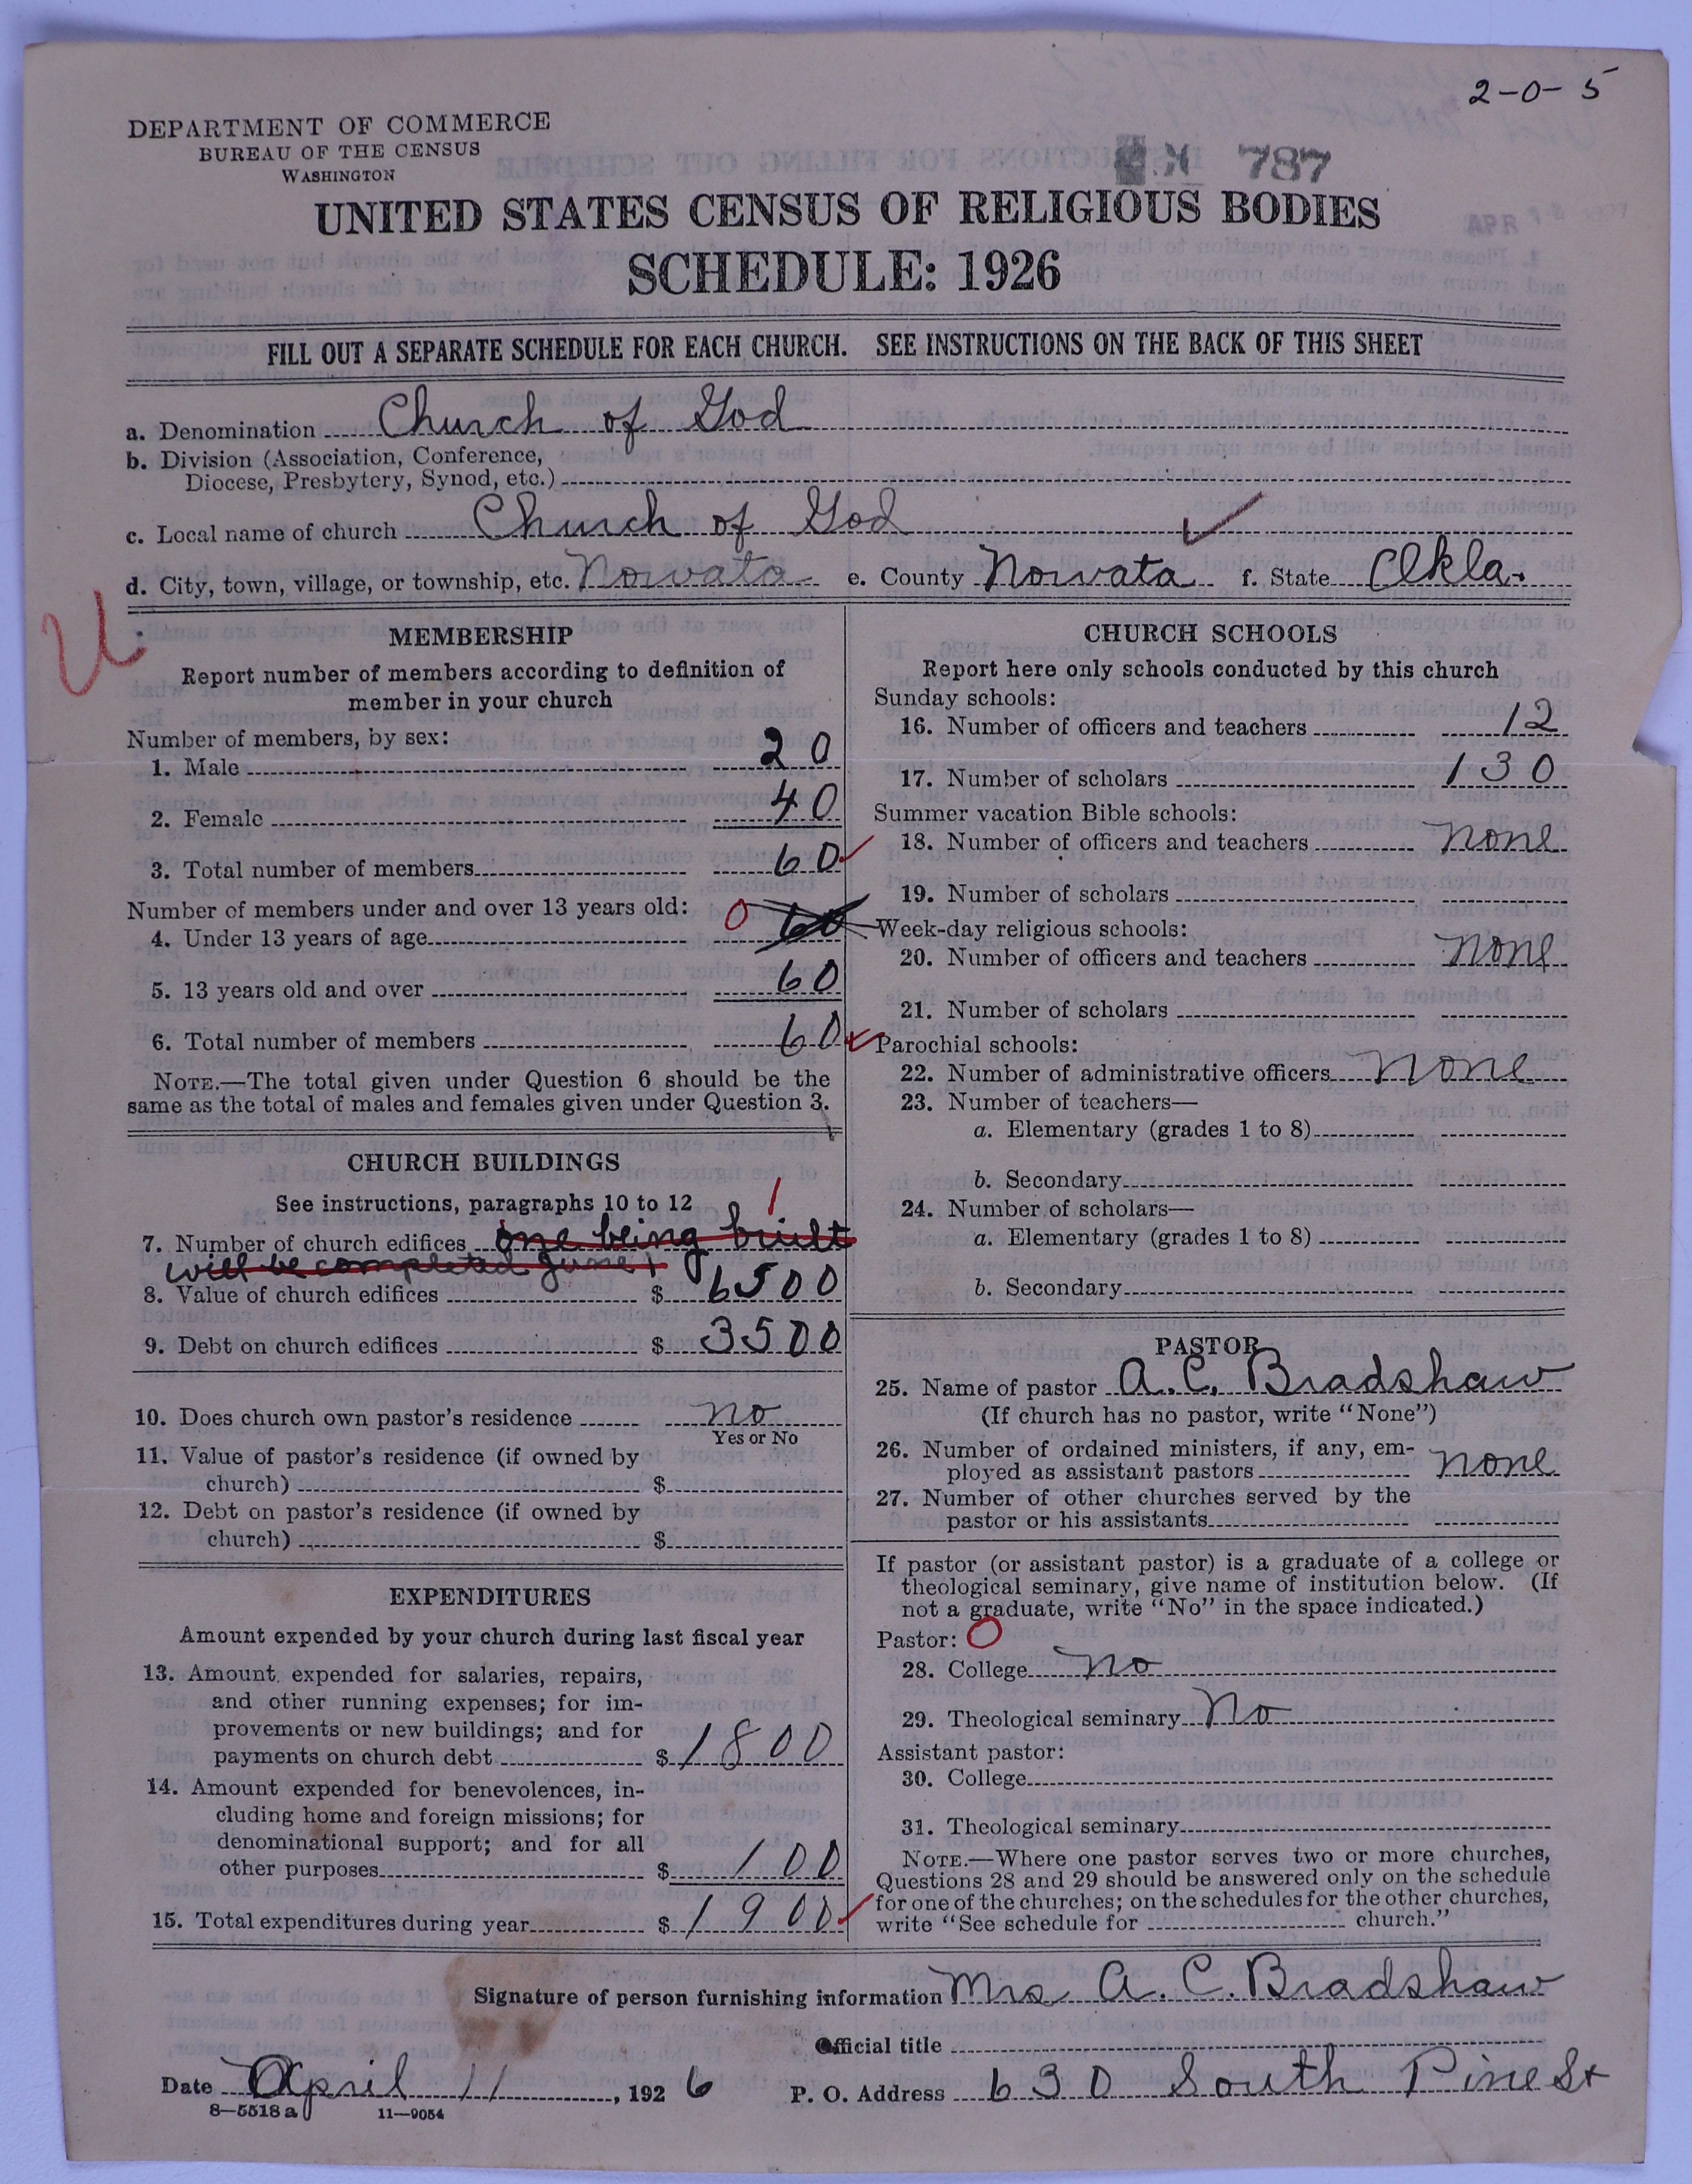 2-0-5
DEPARTMENT OF COMMERCE
BUREAU OF THE CENSUS
WASHINGTON
787
UNITED STATES CENSUS OF RELIGIOUS BODIES
SCHEDULE: 1926
FILL OUT A SEPARATE SCHEDULE FOR EACH CHURCH. SEE INSTRUCTIONS ON THE BACK OF THIS SHEET
a. Denomination Church of God
b. Division (Association, Conference,
Diocese, Presbytery, Synod, etc.)
c. Local name of church Church of God
d. City, town, village, or township, etc. Nowata e. County Nowata f. State Okla.
U
MEMBERSHIP
Report number of members according to definition of
member in your church
Number of members, by sex:
1. Male 20
2. Female 40
3. Total number of members 60
Number of members under and over 13 years old:
4. Under 13 years of age 0 60
5. 13 years old and over 60
6. Total number of members 60
NOTE.—The total given under Question 6 should be the
same as the total of males and females given under Question 3.
CHURCH BUILDINGS
See instructions, paragraphs 10 to 12
1
7. Number of church edifices one being built
will be completed June 1
8. Value of church edifices $ 6500
9. Debt on church edifices $ 3500
10. Does church own pastor's residence no
Yes or No
11. Value of pastor's residence (if owned by
church) $
12. Debt on pastor's residence (if owned by
church) $
EXPENDITURES
Amount expended by your church during last fiscal year
13. Amount expended for salaries, repairs,
and other running expenses; for im-
provements or new buildings; and for
payments on church debt $ 1800
14. Amount expended for benevolences, in-
cluding home and foreign missions; for
denominational support; and for all
other purposes $ 100
15. Total expenditures during year $ 1900
CHURCH SCHOOLS
Report here only schools conducted by this church
Sunday schools:
16. Number of officers and teachers 12
17. Number of scholars 130
Summer vacation Bible schools:
18. Number of officers and teachers none
19. Number of scholars
Week-day religious schools:
20. Number of officers and teachers none
21. Number of scholars
Parochial schools:
22. Number of administrative officers none
23. Number of teachers—
a. Elementary (grades 1 to 8)
b. Secondary
24. Number of scholars—
a. Elementary (grades 1 to 8)
b. Secondary
PASTOR
25. Name of pastor A. C. Bradshaw
(If church has no pastor, write "None")
26. Number of ordained ministers, if any, em-
ployed as assistant pastors none
27. Number of other churches served by the
pastor or his assistants
If pastor (or assistant pastor) is a graduate of a college or
theological seminary, give name of institution below. (If
not a graduate, write "No" in the space indicated.)
Pastor: O
28. College no
29. Theological seminary no
Assistant pastor:
30. College
31. Theological seminary
NOTE.—Where one pastor serves two or more churches,
Questions 28 and 29 should be answered only on the schedule
for one of the churches; on the schedules for the other churches,
write "See schedule for church."
Signature of person furnishing information Mrs A. C. Bradshaw
Official title
Date April 11, 1926 P. O. Address 630 South Pine St
8—5518 a 11—9054